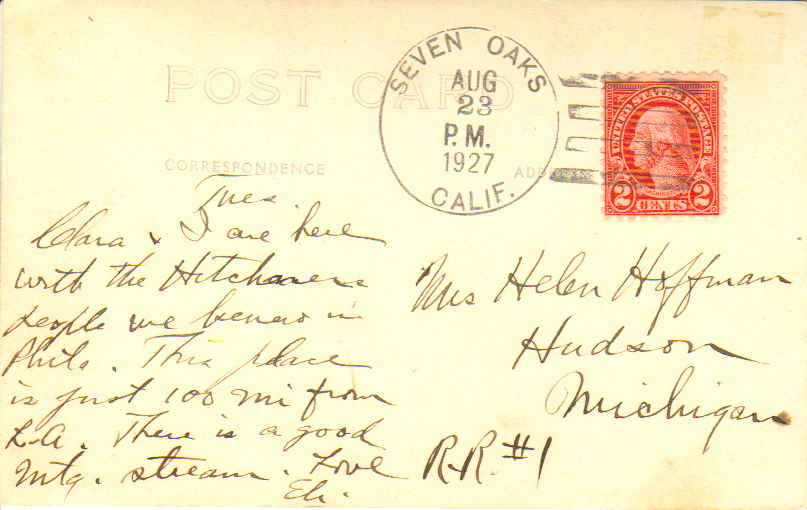 POST CARD
CORRESPONDENCE
SEVEN OAKS
AUG
23
P.M.
1927
CALIF.
UNITED STATES POSTAGE
2 CENTS 2
Tues.
Clara & I are here
with the
people we knew in
Phila. This place
is just 100 mi from
L.A. There is a good
mtg. stream. Love
Mrs Helen Hoffman
Hudson
Michigan
R.R. #1